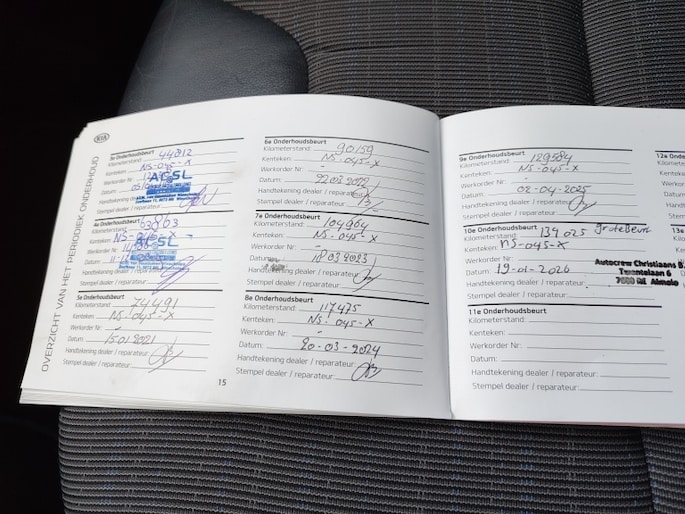 KIA
OVERZICHT VAN HET PERIODIEK ONDERHOUD
3e Onderhoudsbeurt
Kilometerstand: 44812
Kenteken: NS-045-X
Werkorder Nr:
Datum:
Handtekening dealer
Stempel dealer / reparateur:
AGSL
4e Onderhoudsbeurt
Kilometerstand: 63863
Kenteken: NS-045-X
Werkorder Nr:
Datum:
Handtekening dealer / reparateur:
Stempel dealer / reparateur:
AGSL
5e Onderhoudsbeurt
Kilometerstand: 74491
Kenteken: NS-045-X
Werkorder Nr: -
Datum: 15 01 2021
Handtekening dealer / reparateur:
Stempel dealer / reparateur:
15
6e Onderhoudsbeurt
Kilometerstand: 90159
Kenteken: NS-045-X
Werkorder Nr: -
Datum: 22 03 2022
Handtekening dealer / reparateur:
Stempel dealer / reparateur:
7e Onderhoudsbeurt
Kilometerstand: 104964
Kenteken: NS-045-X
Werkorder Nr: -
Datum: 18 03 2023
Handtekening dealer / reparateur:
Stempel dealer / reparateur:
8e Onderhoudsbeurt
Kilometerstand: 117475
Kenteken: NS-045-X
Werkorder Nr: -
Datum: 20-03-2024
Handtekening dealer / reparateur:
Stempel dealer / reparateur:
9e Onderhoudsbeurt
Kilometerstand: 129584
Kenteken: NS-045-X
Werkorder Nr:
Datum: 02-04-2025
Handtekening dealer / reparateur:
Stempel dealer / reparateur:
10e Onderhoudsbeurt
Kilometerstand: 134025 grote Beurt
Kenteken: NS-045-X
Werkorder Nr:
Datum: 19-01-2026
Handtekening dealer / reparateur:
Stempel dealer / reparateur:
Autocrew Christiaans B
Twentelaan 6
Almelo
11e Onderhoudsbeurt
Kilometerstand:
Kenteken:
Werkorder Nr:
Datum:
Handtekening dealer / reparateur:
Stempel dealer / reparateur:
12e On
Kilome
Kente
Werko
Datum
Handt
Stemp